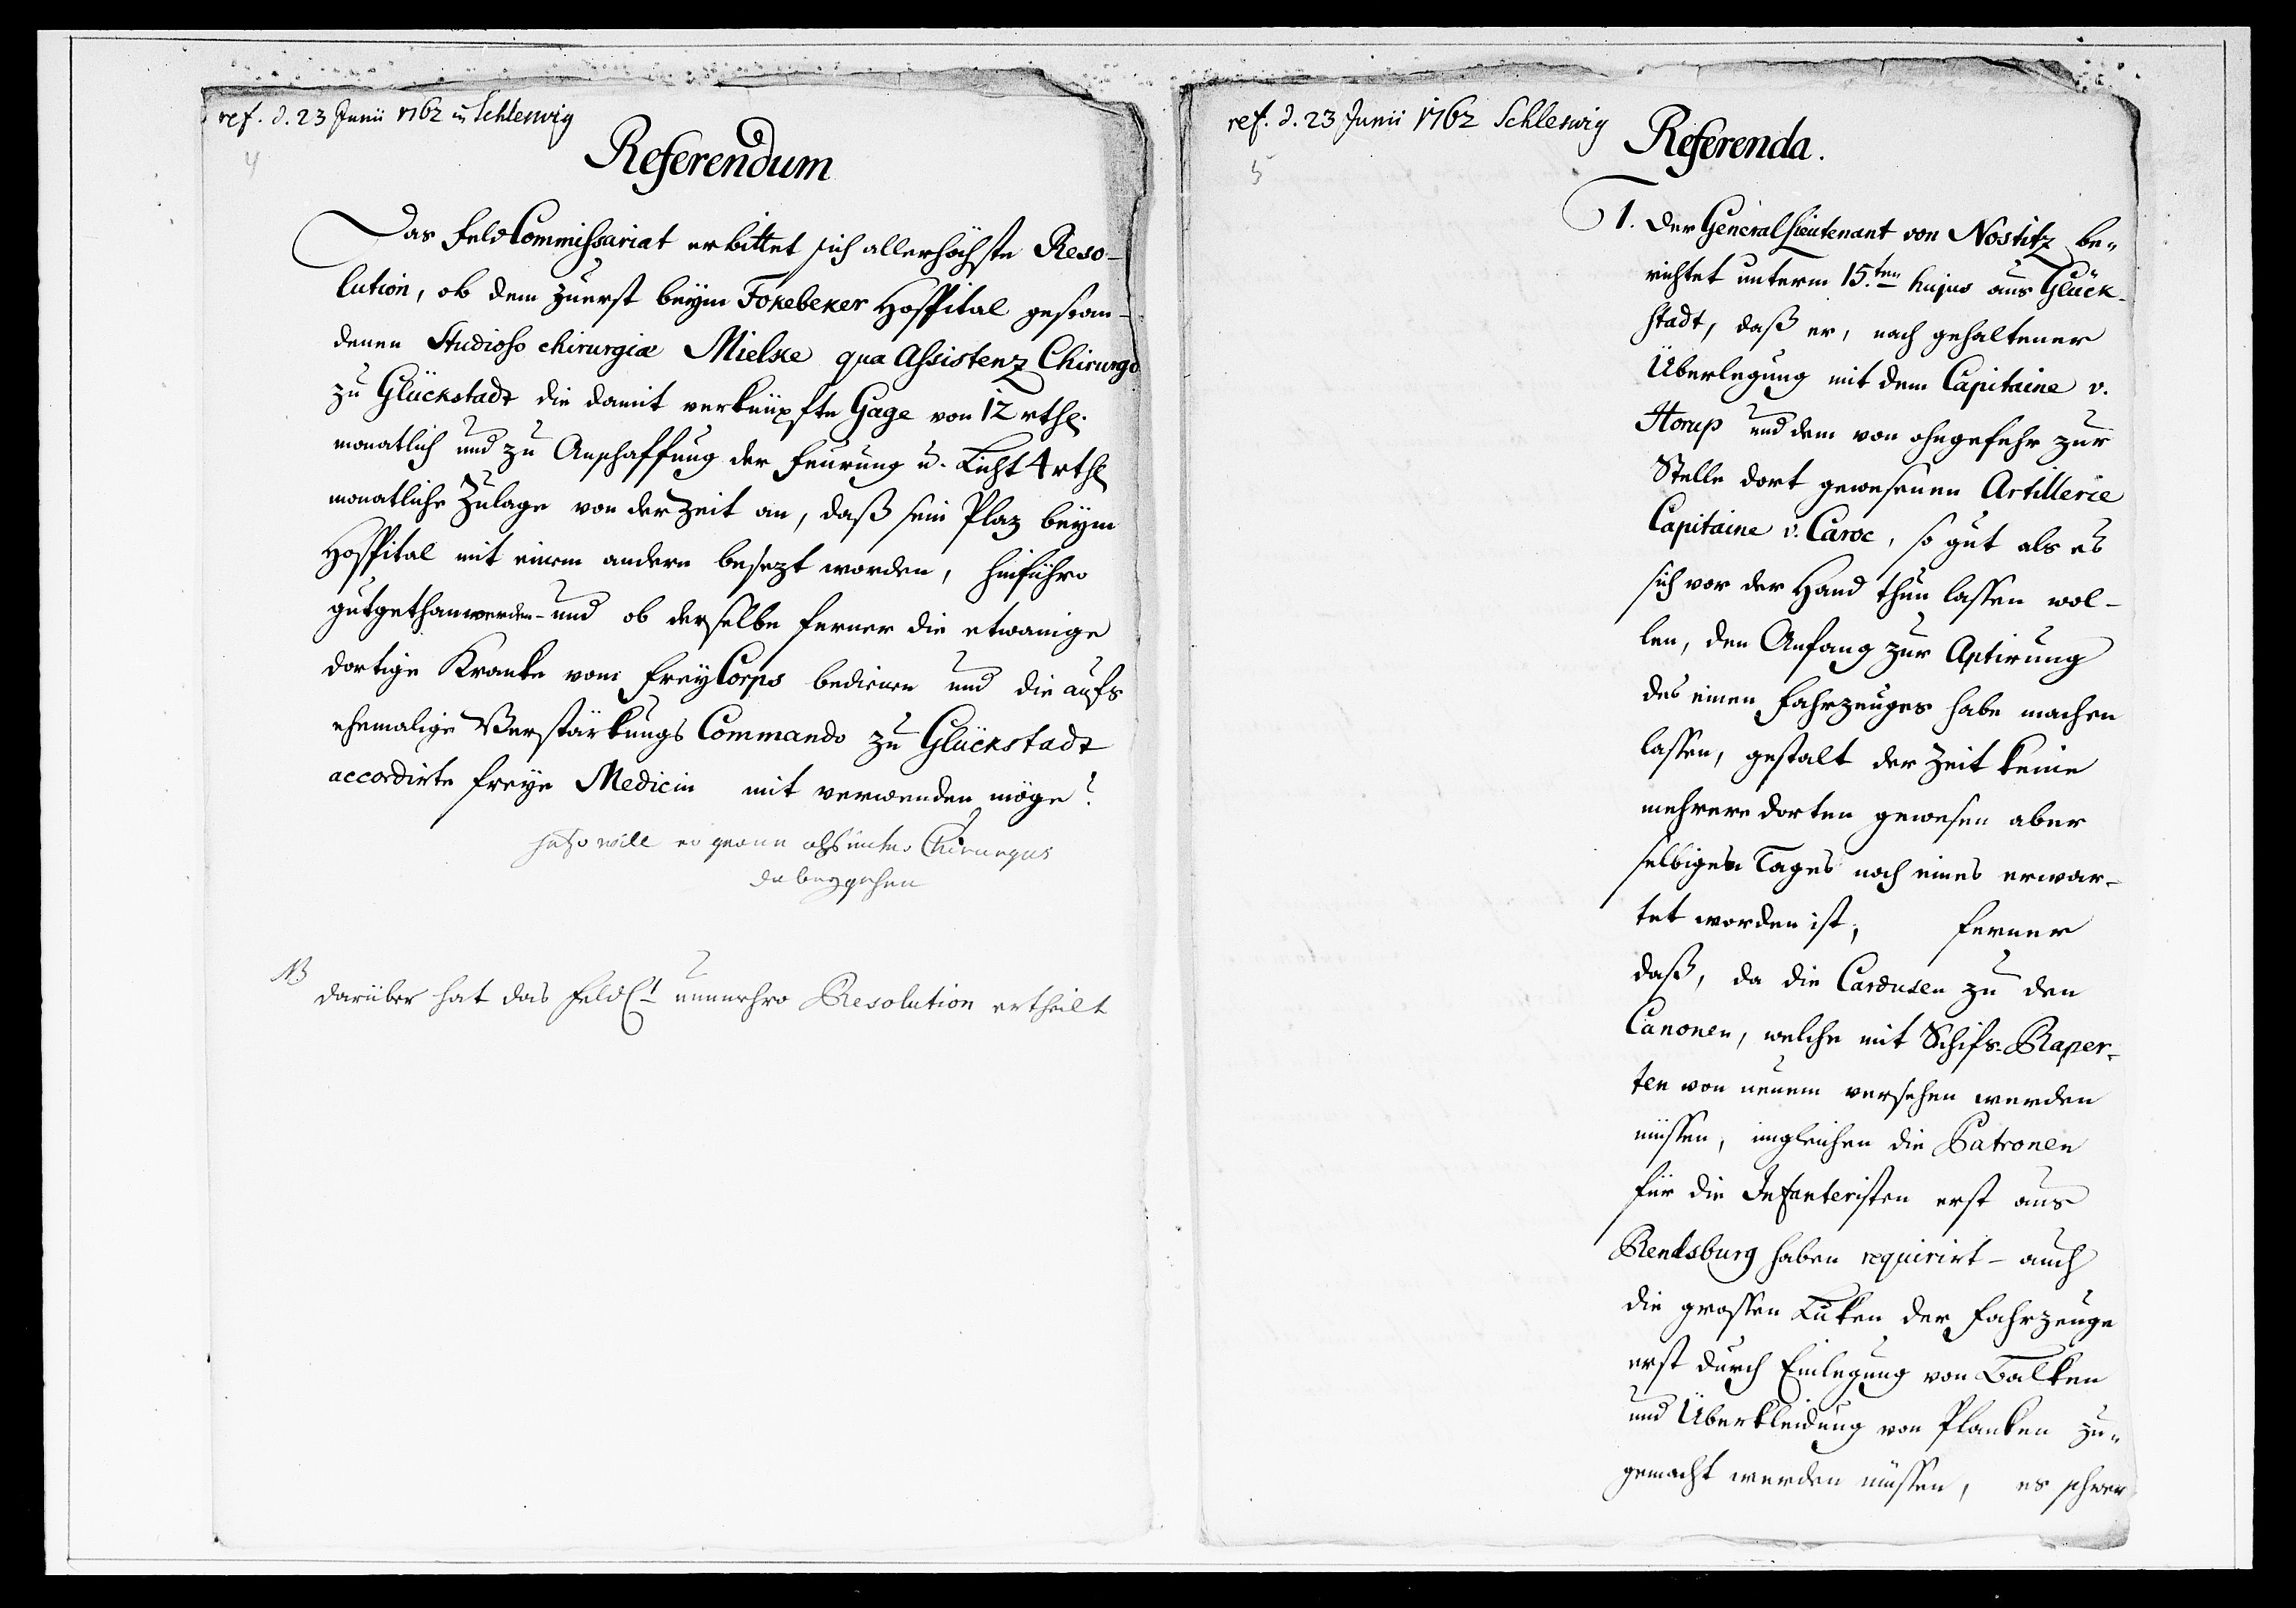 ref. d. 23 Junii 1762 in Schleswig
4
Referendum
Das FeldCommissariat erbittet sich allerhöchste Reso-
lution, ob dem zuerst beym Fokebeker Hospital gestan-
denen Studioso chirurgiæ Mielske qua Assistenz Chirurgo
zu Glückstadt die damit verknüpfte Gage von 12 rthl.
monatlich und zu Anschaffung der Feurung u. Licht 4 rthl
monatliche Zulage von der Zeit an, daß sein Plaz beym
Hospital mit einem andern besezt worden, hinführo
gutgethan werden - und ob derselbe ferner die etwanige
dortige Kranke vom FreyCorps bedienen und die aufs
ehemalige Verstärkungs Commando zu Glückstadt
accordirte freye Medicin mit verwenden möge?
will er Chirurgus
NB
darüber hat das FeldCt nunmehro Resolution ertheilt
ref. d. 23 Junii 1762 Schleswig
5
Referenda.
1. Der GeneralLieutenant von Nostitz be-
richtet unterm 15.ten hujus aus Glück-
stadt, daß er, nach gehaltener
Überlegung mit dem Capitaine v.
Storup und dem von ohngefehr zur
Stelle dort gewesenen Artillerie
Capitaine v. Caroc, so gut als es
sich vor der Hand thun lassen wol-
len, den Anfang zur Aptirung
des einen Fahrzeuges habe machen
lassen, gestalt der Zeit keine
mehrere dorten gewesen aber
selbigen Tages noch eines erwar-
tet worden ist; ferner
daß, da die Cardusen zu den
Canonen, welche mit Schifs-Raper-
ten von neuem versehen werden
müssen, imgleichen die Patronen
für die Infanteristen erst aus
Rendsburg haben requirirt - auch
die grossen Luken der Fahrzeuge
erst durch Einlegung von Balken
und Überkleidung von Planken zu-
gemacht werden müssen, es schwer